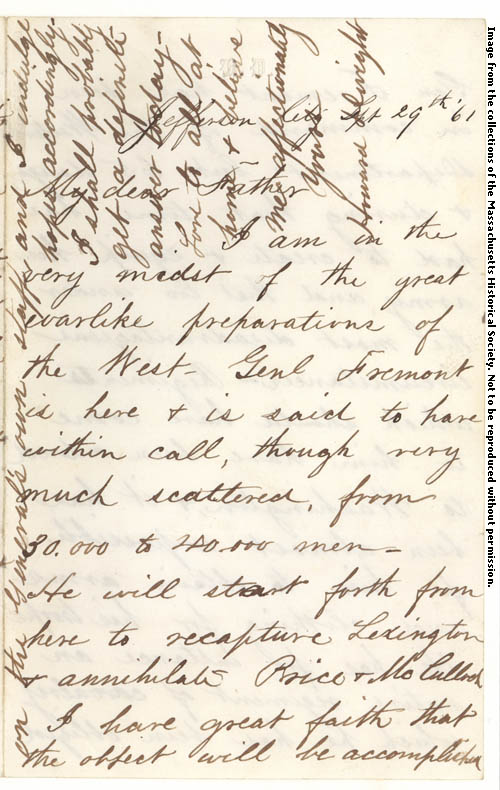 Jefferson City Sept 29th '61
My dear Father
I am in the
very midst of the great
warlike preparations of
the West- Genl Fremont
is here & is said to have
within call, though very
much scattered, from
30.000 to 40.000 men-
He will start forth from
here to recapture Lexington
& annihilate Price & McCulloch
I have great faith that
the object will be accomplished
on the General's own staff and I indulge
hopes accordingly-
I shall probably
get a definite
answer today-
Love to all at
home & believe
me affectionately
Yours
Howard Dwight
Image from the collections of the Massachusetts Historical Society. Not to be reproduced without permission.